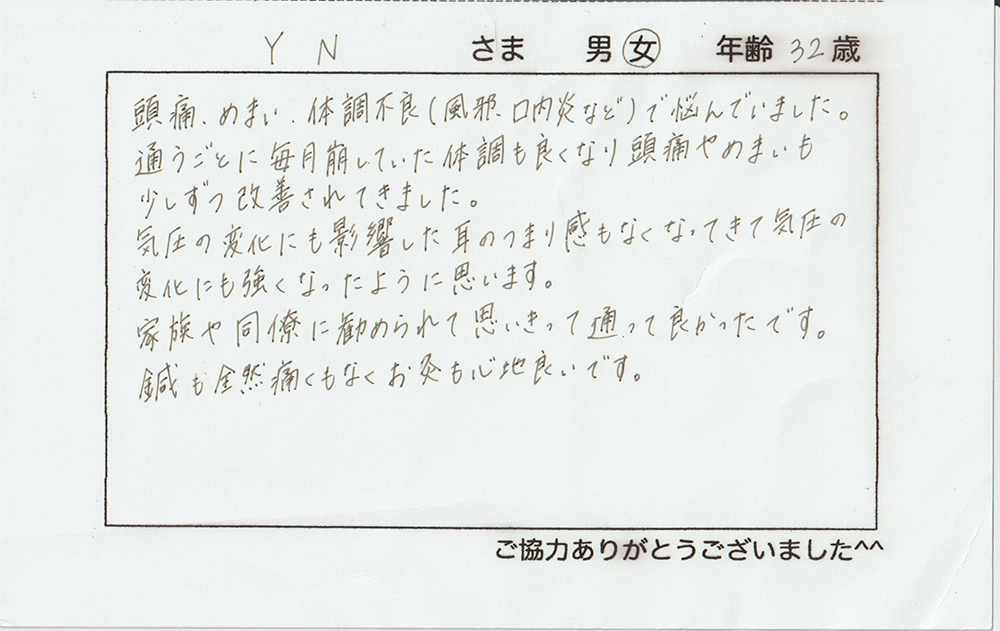 Y N さま 男 女 年齢 32 歳
頭痛、めまい、体調不良(風邪、口内炎など)で悩んでいました。
通うごとに毎月崩していた体調も良くなり頭痛やめまいも
少しずつ改善されてきました。
気圧の変化にも影響した耳のつまり感もなくなってきて気圧の
変化にも強くなったように思います。
家族や同僚に勧められて思いきって通って良かったです。
鍼も全然痛くもなくお灸も心地良いです。
ご協力ありがとうございました^^